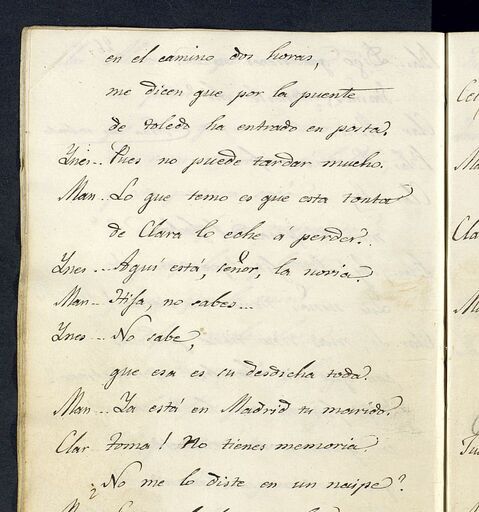 en el camino dos horas,
me dicen que por la puente
de toledo ha entrado en posta.
Ynes.. Pues no puede tardar mucho.
Man.. Lo que temo es que esta tonta
de Clara lo eche á perder.
Ynes.. Aquí está, señor, la novia.
Man.. Hija, no sabes...
Ynes.. No sabe,
que esa es su desdicha toda.
Man.. Ya está en Madrid tu marido.
Clar toma! No tienes memoria.
¿No me lo diste en un naipe?
Cla
Man